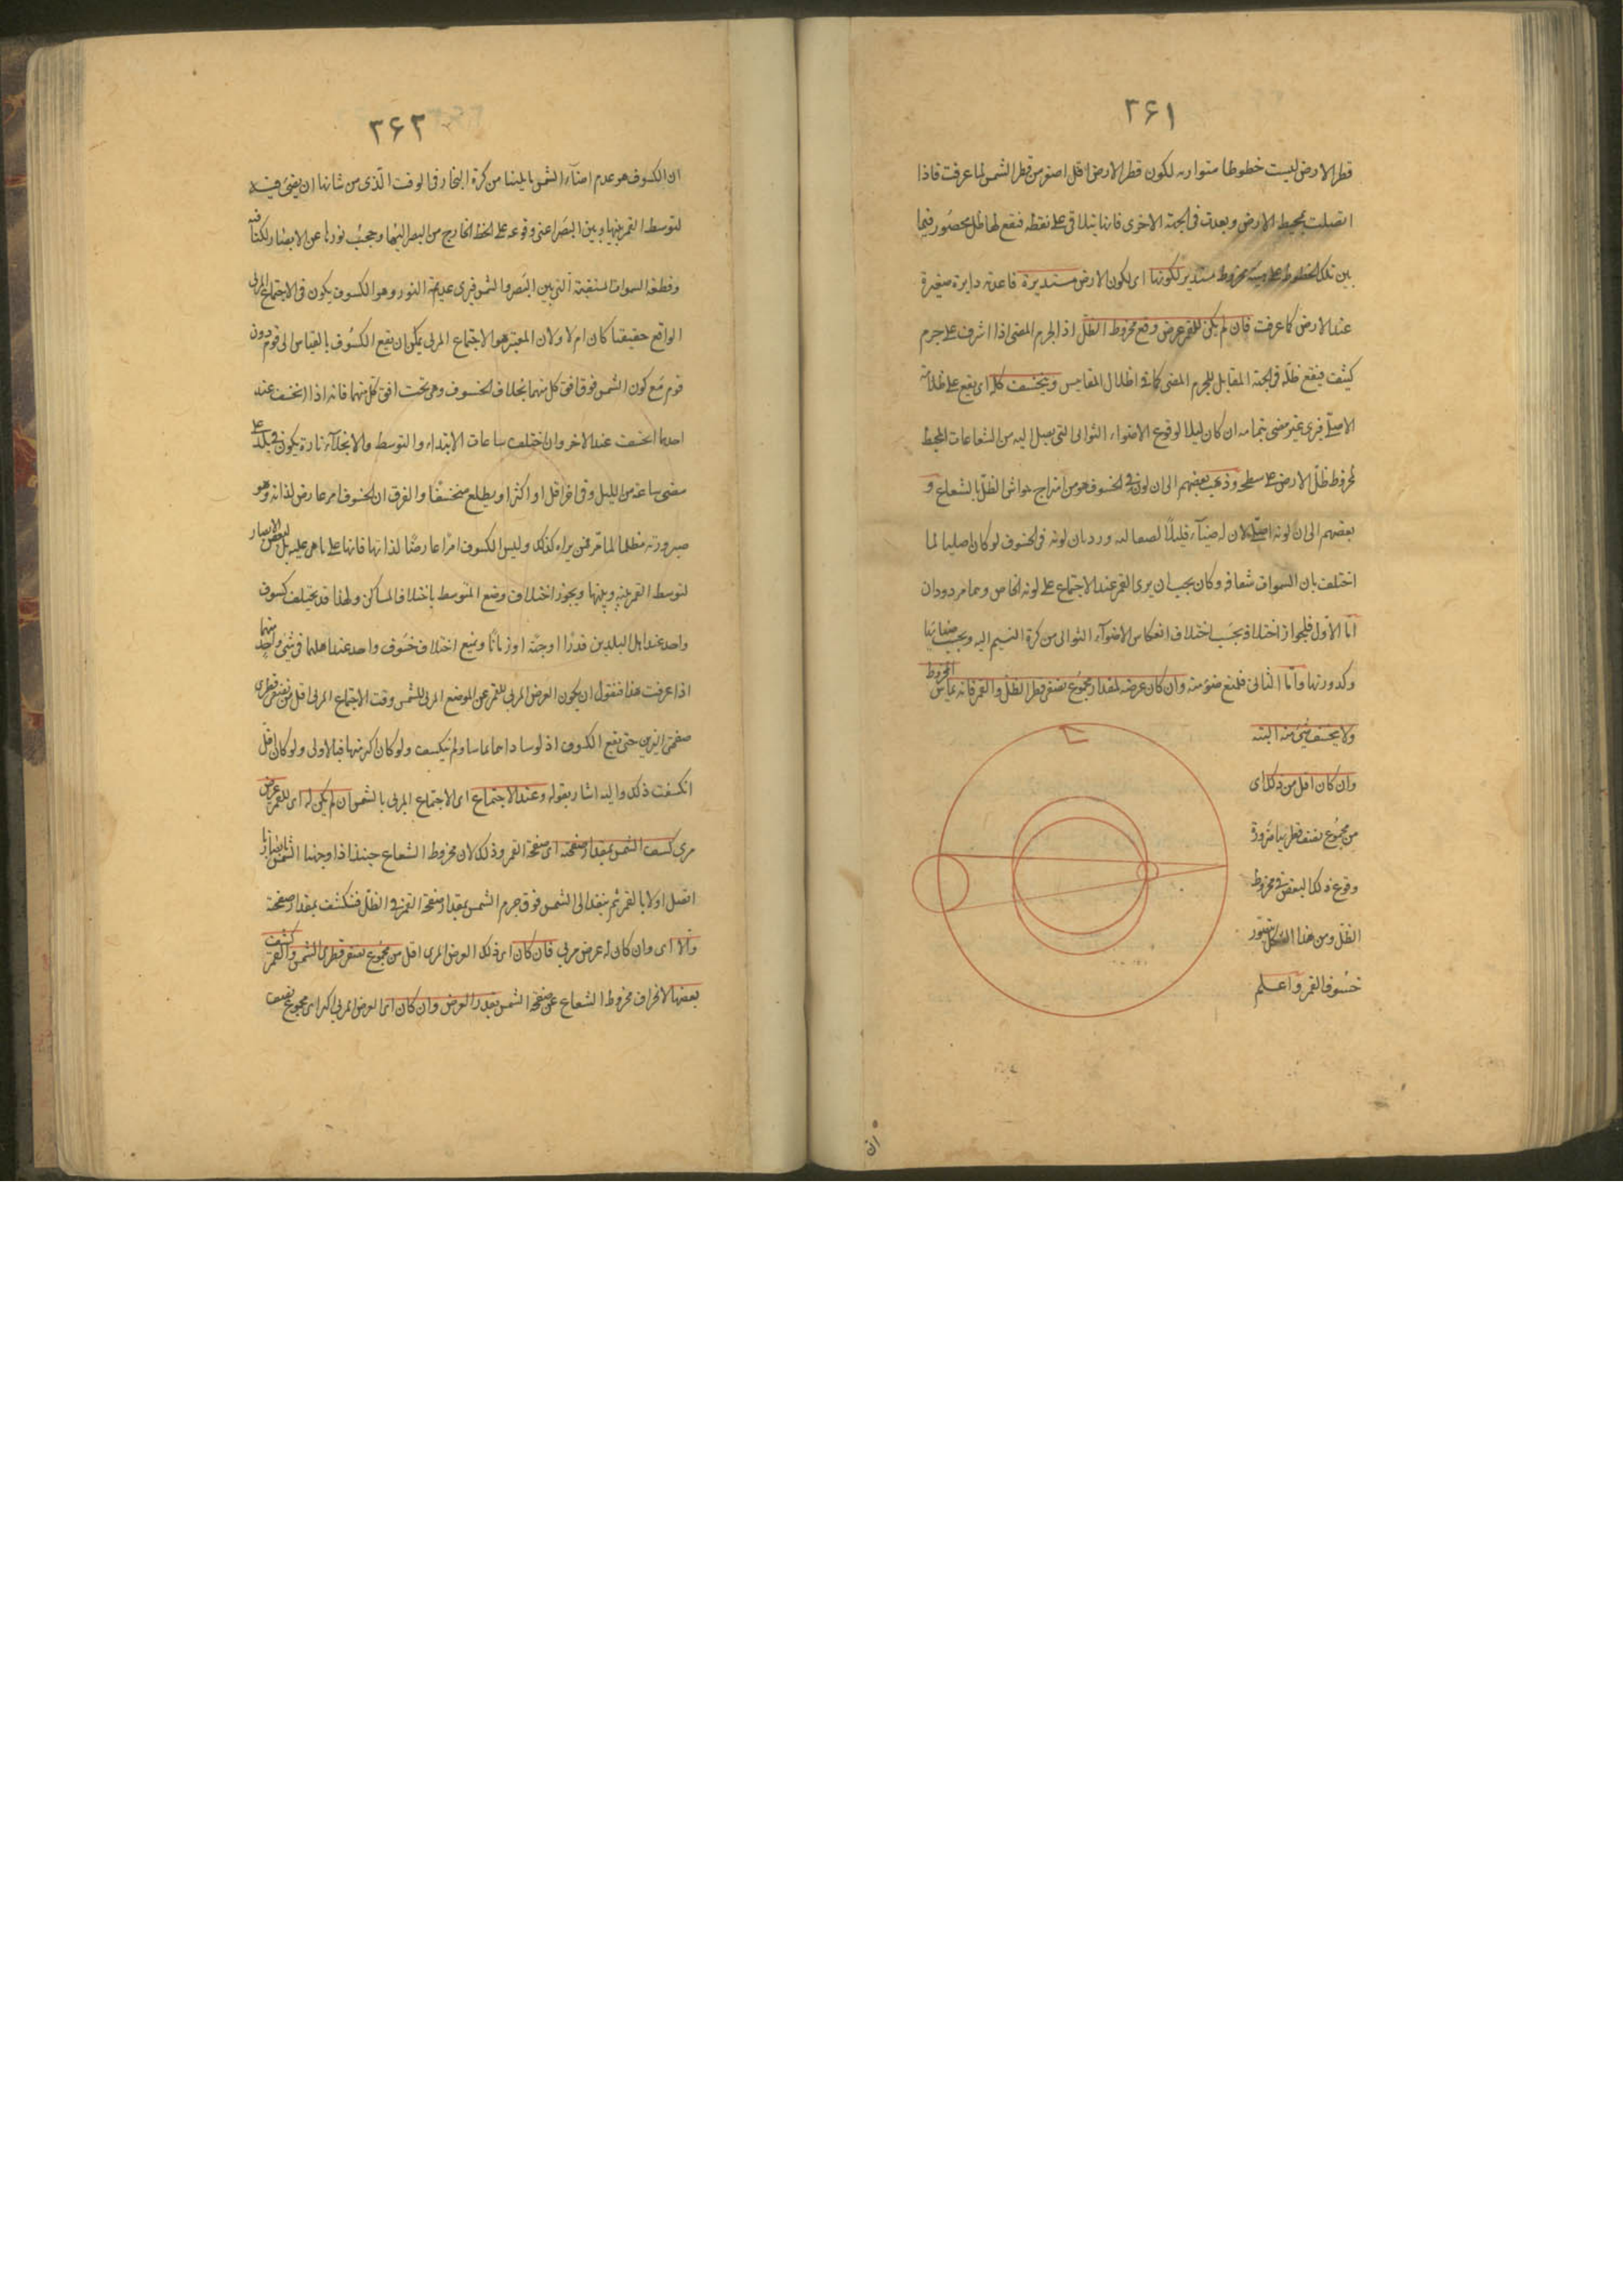 ۲۶۱
قطر الارض ليست خطوطا متوازيه لكون قطر الارض اقل اصغر من قطر الشمس لما عرفت فاذا
اتصلت بمحيط الارض وبعدت فى الجهة الاخرى فانها تتلاقى على نقطة فيقع لها ظل محصور فيما
بين تلك الخطوط على هيئة مخروط مستدير لكونها اى لكون الارض مستديرة قاعدته دايرة صغيرة
عند الارض كما عرفت فان لم يكن للقمر عرض وقع مخروط الظل اذ الجرم المضى اذا اشرف على جرم
كثيف فيقع ظله فى الجهة المقابل للجرم المضى كما فى اظلال المقاييس وينخسف كله اى يقع على ظلامه
الاصلى فيرى غير مضى بتمامه ان كان ليلا لوقوع الاضواء الثوانى التى يصل اليه من الشعاعات المحيط
لمخروط ظل الارض على سطحه وذهب بعضهم الى ان لونه فى الخسوف هو من امتزاج حواشى الظل بالشعاع و
بعضهم الى ان لونه اصلى لان له ضياء قليلا لصقالته ورد بان لونه فى الخسوف لو كان اصليا لما
اختلف بان السموات شفافه وكان يجب ان يرى القمر عند الاجتماع على لونه الخاص وهما مردودان
اما الاول فلجواز اختلافه بحسب اختلاف انعكاس الاضواء الثوانى من كرة النسيم اليه وبحسب صفائها
وكدورتها واما الثانى فلمنع ضوء منه وان كان عرضه لمقدار مجموع نصفى قطر الظل والقمر فانه يماس المخروط
ولا ينخسف شئ منه البته
وان كان اقل من ذلك اى
من مجموع نصف قطريهما ضرورة
وقوع ذلك البعض فى مخروط
الظل ومن هذا الشكل يتصور
خسوف القمر واعلم
ان
۲۶۲
ان الكسوف هو عدم اضاءة الشمس ما يلينا من كرة البخار فى الوقت الذى من شانها ان يضئ فيه
لتوسط القمر بينها وبين البصر اعنى وقوعه على الخط الخارج من البصر اليها وحجب نورها عن الابصار لكثافته
وقطعه السموات المنفية التى بين البصر والشمس فيرى عديمة النور وهو الكسوف يكون فى الاجتماع المرئى
الواقع حقيقيا كان ام لا ولان المعتبر هو الاجتماع المرئى يمكن ان يقع الكسوف بالقياس الى قوم دون
قوم مع كون الشمس فوق افق كل منهما بخلاف الخسوف وهى تحت افق كل منهما فانه اذا انخسف عند
احدهما انخسف عند الاخر وان اختلف ساعات الابتداء والتوسط والانجلاء تارة يكون فى بلد على
مضى ساعة من الليل وفى اخر اقل او اكثر او يطلع منخسفا والفرق ان الخسوف امر عارض لذاته وهو
صيرورته مظلما لما مر فمن يراه كذلك وليس الكسوف امرا عارضا لذاتها فانها على ما هى عليه بل لبعض الابصار
لتوسط القمر بينه وبينها ويجوز اختلاف وضع المتوسط باختلاف المساكن ولهذا قد يختلف كسوف
واحد عند اهل البلدين قدرا اوجهة او زمانا ويمنع اختلاف خسوف واحد عند اهلهما فى شئ واحد منهما
اذا عرفت هذا فنقول ان يكون العرض المرئى للقمر عن الموضع المرئى للشمس وقت الاجتماع المرئى اقل من نصفى قطرى
صفحتى النيرين حتى يقع الكسوف اذ لو ساواهما تماسا ولم ينكسف ولو كان اكبر منها فبالاولى ولو كان اقل
انكسفت ذلك واليه اشار بقوله وعند الاجتماع اى الاجتماع المرئى بالشمس ان لم يكن له اى للقمر عرض
مرى كسف الشمس بمقدار صفحته اى صفحة القمر وذلك لان مخروط الشعاع حينئذ اذا وجهنا الشمس بابصارنا
اتصل اولا بالقمر ثم ينفذ الى الشمس فوق جرم الشمس بمقدار صفحة القمر فى الظل فينكسف بمقدار صفحته
والا اى وان كان له عرض مرئى فان كان اى ذلك العرض المرئى اقل من مجموع نصفى قطرى الشمس والقمر كسف
بعضها لانحراف مخروط الشعاع عن صفحة الشمس بقدر العرض وان كان اى العرض المرئى اكبر اى مجموع نصف